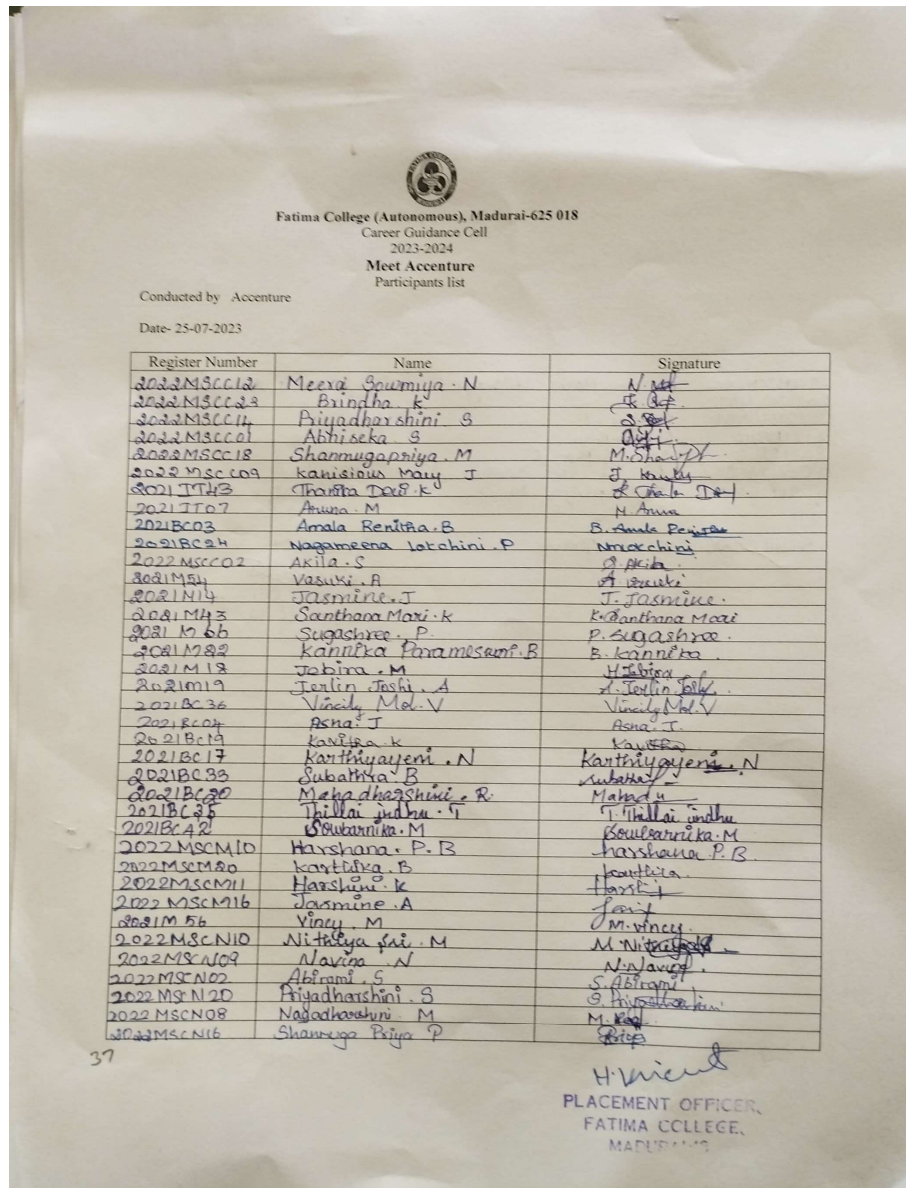 Fatima College (Autonomous), Madurai-625 018
Career Guidance Cell
2023-2024
Meet Accenture
Participants list
Conducted by Accenture
Date- 25-07-2023
Register Number Name Signature
2022MSCC12 Meera Sowmiya . N
2022MSCC23 Brindha K
2022MSCC14 Priyadharshini S
2022MSCC01 Abhiseka S
2022MSCC18 Shanmugapriya . M
2022MSCC09 Kanisious Mary J
2021IT43 Tharika Devi . K
2021IT07 Aruna . M
2021BC03 Amala Renitha . B
2021BC24 Nagameena Lokchini . P Nmlokchini
2022MSCC02 Akila . S
2021M54 Vasuki . A
2021M14 Jasmine . J J. Jasmine .
2021M43 Santhana Mari . K K. Santhana Mari
2021M66 Sugashree . P. P. Sugashree .
2021M22 Kannika Parameswari . B B. Kannika .
2021M18 Jebira . M
2021M19 Jerlin Joshi . A
2021BC36 Vincily Mol . V Vincily Mol . V
2021BC04 Asna . J Asna . J .
2021BC19 Kavitha . K
2021BC17 Karthiyayeni . N Karthiyayeni . N
2021BC33 Subathra . B
2021BC20 Mahadharshini . R
2021BC35 Thillai indhu . T T. Thillai indhu
2021BC42 Sowbarnika . M Sowbarnika . M
2022MSCM10 Harshana . P. B harshana . P. B
2022MSCM20 Karthika . B
2022MSCM11 Harshini . K
2022MSCM16 Jasmine . A
2021M56 Vincy . M M. Vincy .
2022MSCN10 Nithiya Sri . M
2022MSCN09 Navina . N
2022MSCN02 Abirami . S S. Abirami
2022MSCN20 Priyadharshini . S S. Priyadharshini
2022MSCN08 Nagadharshni . M
2022MSCN16 Shanmuga Priya P
37
PLACEMENT OFFICER,
FATIMA COLLEGE,